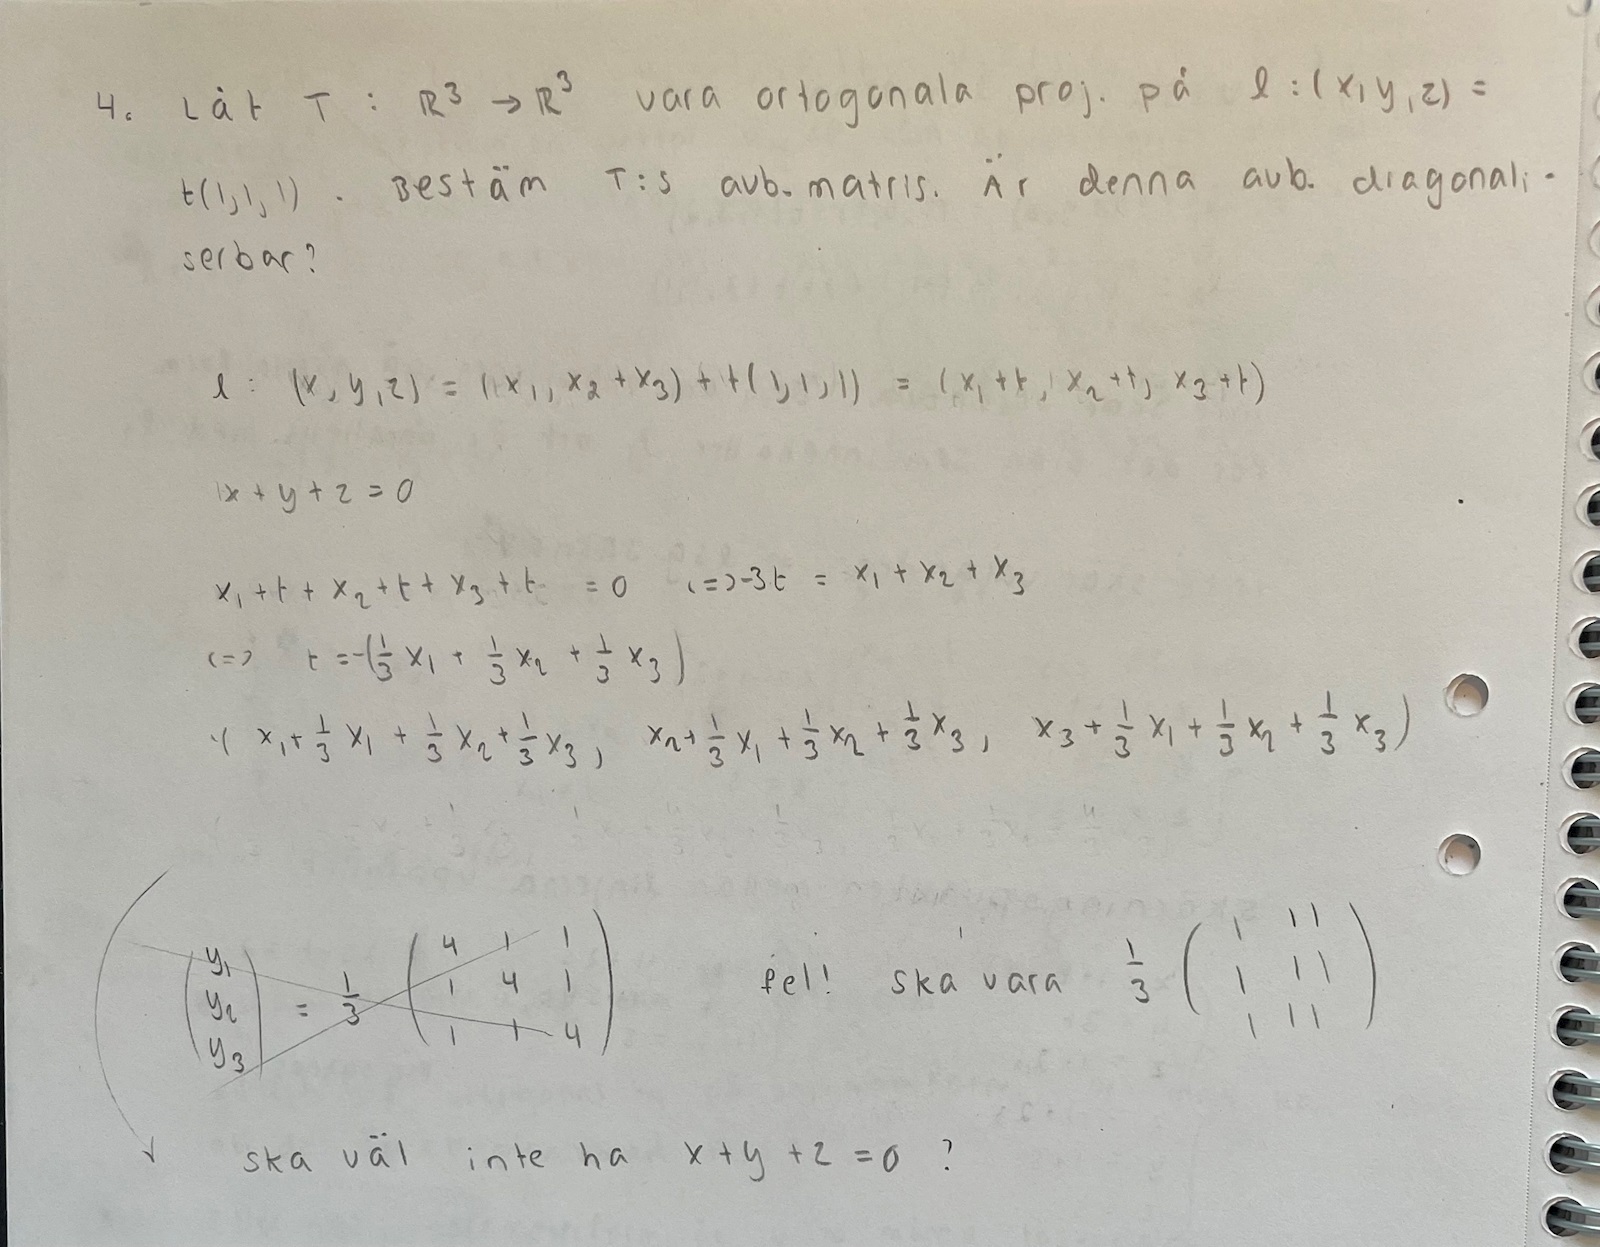 4. Låt T : ℝ³ → ℝ³ vara ortogonala proj. på l : (x,y,z) =
t(1,1,1) . Bestäm T:s avb.matris. Är denna avb. diagonali-
serbar?
l : (x,y,z) = (x₁, x₂ + x₃) + t(1,1,1) = (x₁+t, x₂+t, x₃+t)
x + y + z = 0
x₁ + t + x₂ + t + x₃ + t = 0 <=> -3t = x₁ + x₂ + x₃
<=> t = -(1/3 x₁ + 1/3 x₂ + 1/3 x₃)
( x₁ + 1/3 x₁ + 1/3 x₂ + 1/3 x₃, x₂ + 1/3 x₁ + 1/3 x₂ + 1/3 x₃, x₃ + 1/3 x₁ + 1/3 x₂ + 1/3 x₃)
(y₁ y₂ y₃) = 1/3 (4 1 1 1 4 1 1 1 4) fel! ska vara 1/3 (1 1 1 1 1 1 1 1 1)
ska väl inte ha x + y + z = 0 ?